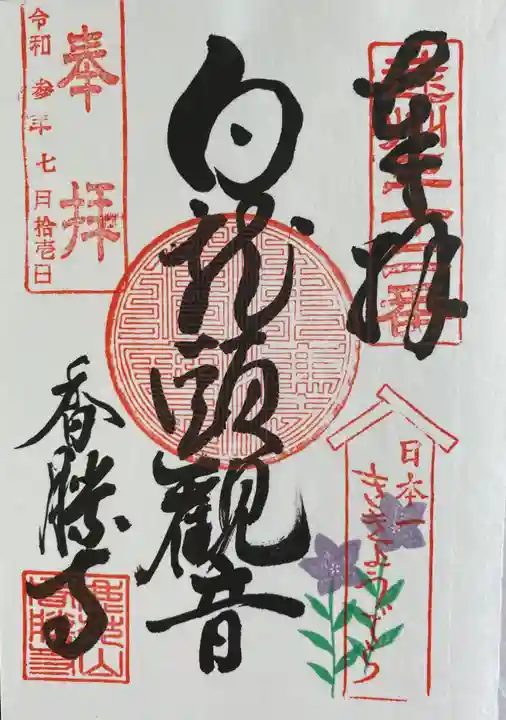 奉拝
日本一
ききょうでら
白龍頭觀音
奉拝
令和参年七月拾壱日
香勝寺